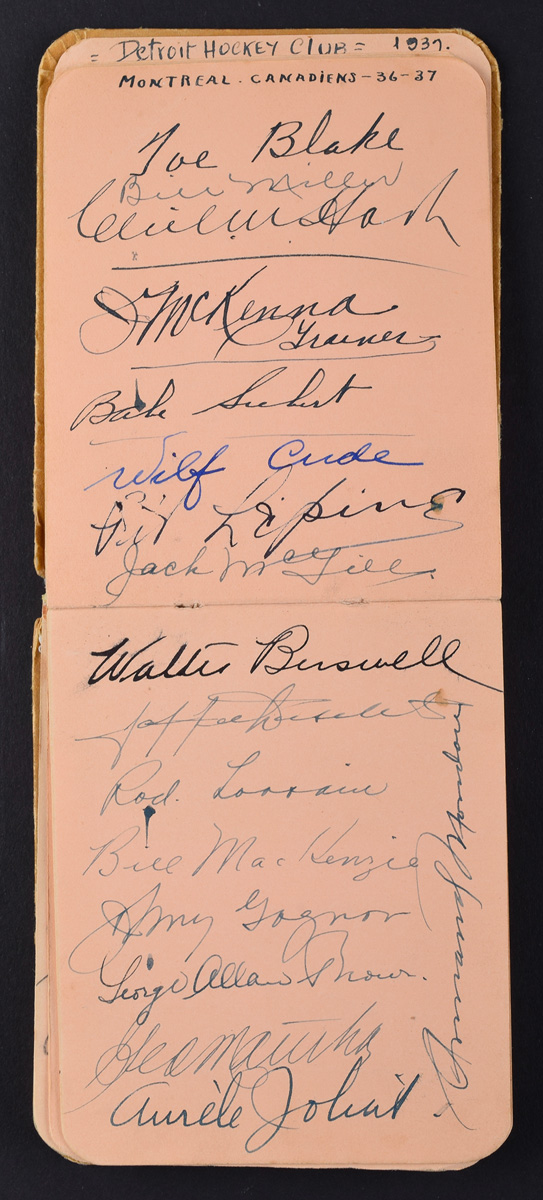 = Detroit Hockey Club = 1937.
MONTREAL - CANADIENS - 36-37
Toe Blake
Bill Miller
Cecil M. Hart
J McKenna
Trainer
Babe Siebert
Wilf Cude
Pit Lépine
Jack McGill.
Walter Buswell
Rod. Lorrain
Bill MacKenzie
Armand Mondou
Johnny Gagnon
George Allan Brown.
Geo Mantha
Aurèle Joliat